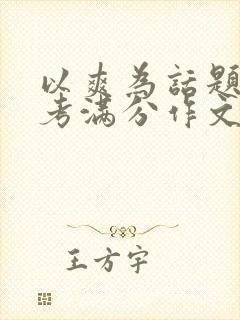 以爽为话题
考满分作文
王方宇